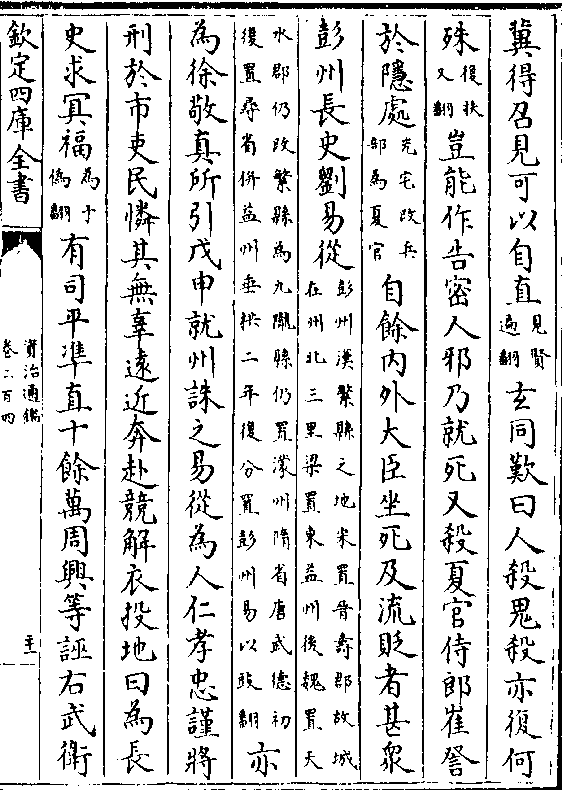 冀得召見可以自直見賢遍翻玄同歎曰人殺鬼殺亦復何
殊復扶又翻豈能作告密人邪乃就死又殺夏官侍郎崔詧
於隱處光宅改兵部為夏官自餘內外大臣坐死及流貶者甚衆
彭州長史劉易從彭州漢繁縣之地宋置晉壽郡故城在州北三里梁置東益州後魏置天
水郡仍改繁縣為九隴縣仍置濛州隋省唐武德初復置尋省併益州垂拱二年復分置彭州易以豉翻亦
為徐敬真所引戊申就州誅之易從為人仁孝忠謹將
刑於市吏民憐其無辜遠近奔赴競解衣投地曰為長
史求冥福為于偽翻有司平準直十餘萬周興等誣右武衛
欽定四庫全書
資治通鑑
卷二百四